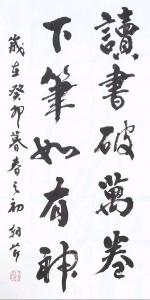 讀書破萬卷
下筆如有神
歲在癸卯暮春之初